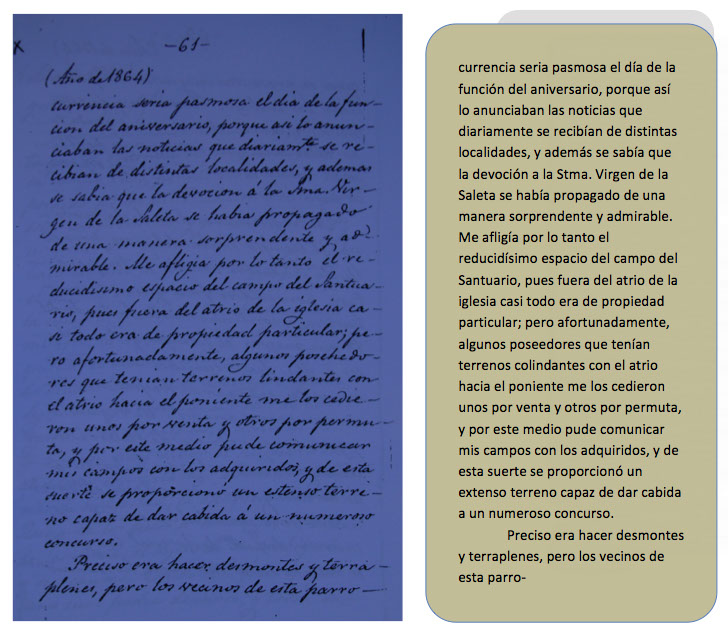 x
-61-
(Año de 1864)
currencia seria pasmosa el dia de la fun-
cion del aniversario, porque asi lo anun-
ciaban las noticias que diariamte. se re-
cibian de distintas localidades, y ademas
se sabia que la devocion á la Sma. Vir-
gen de la Saleta se habia propagado
de una manera sorprendente y ad-
mirable. Me afligia por lo tanto el re-
ducidisimo espacio del campo del Santua-
rio, pues fuera del atrio de la iglesia ca-
si todo era de propiedad particular; pe-
ro afortunadamente, algunos poschedo-
res que tenian terrenos lindantes con
el atrio hacia el poniente me los cedie-
ron unos por venta y otros por permu-
ta, y por este medio pude comunicar
mis campos con los adquiridos, y de esta
suerte se proporciono un estenso terre-
no capaz de dar cabida á un numeroso
concurso.
Preciso era hacer desmontes y terra-
plenes, pero los vecinos de esta parro-
currencia seria pasmosa el día de la
función del aniversario, porque así
lo anunciaban las noticias que
diariamente se recibían de distintas
localidades, y además se sabía que
la devoción a la Stma. Virgen de la
Saleta se había propagado de una
manera sorprendente y admirable.
Me afligía por lo tanto el
reducidísimo espacio del campo del
Santuario, pues fuera del atrio de la
iglesia casi todo era de propiedad
particular; pero afortunadamente,
algunos poseedores que tenían
terrenos colindantes con el atrio
hacia el poniente me los cedieron
unos por venta y otros por permuta,
y por este medio pude comunicar
mis campos con los adquiridos, y de
esta suerte se proporcionó un
extenso terreno capaz de dar cabida
a un numeroso concurso.
Preciso era hacer desmontes
y terraplenes, pero los vecinos de
esta parro-